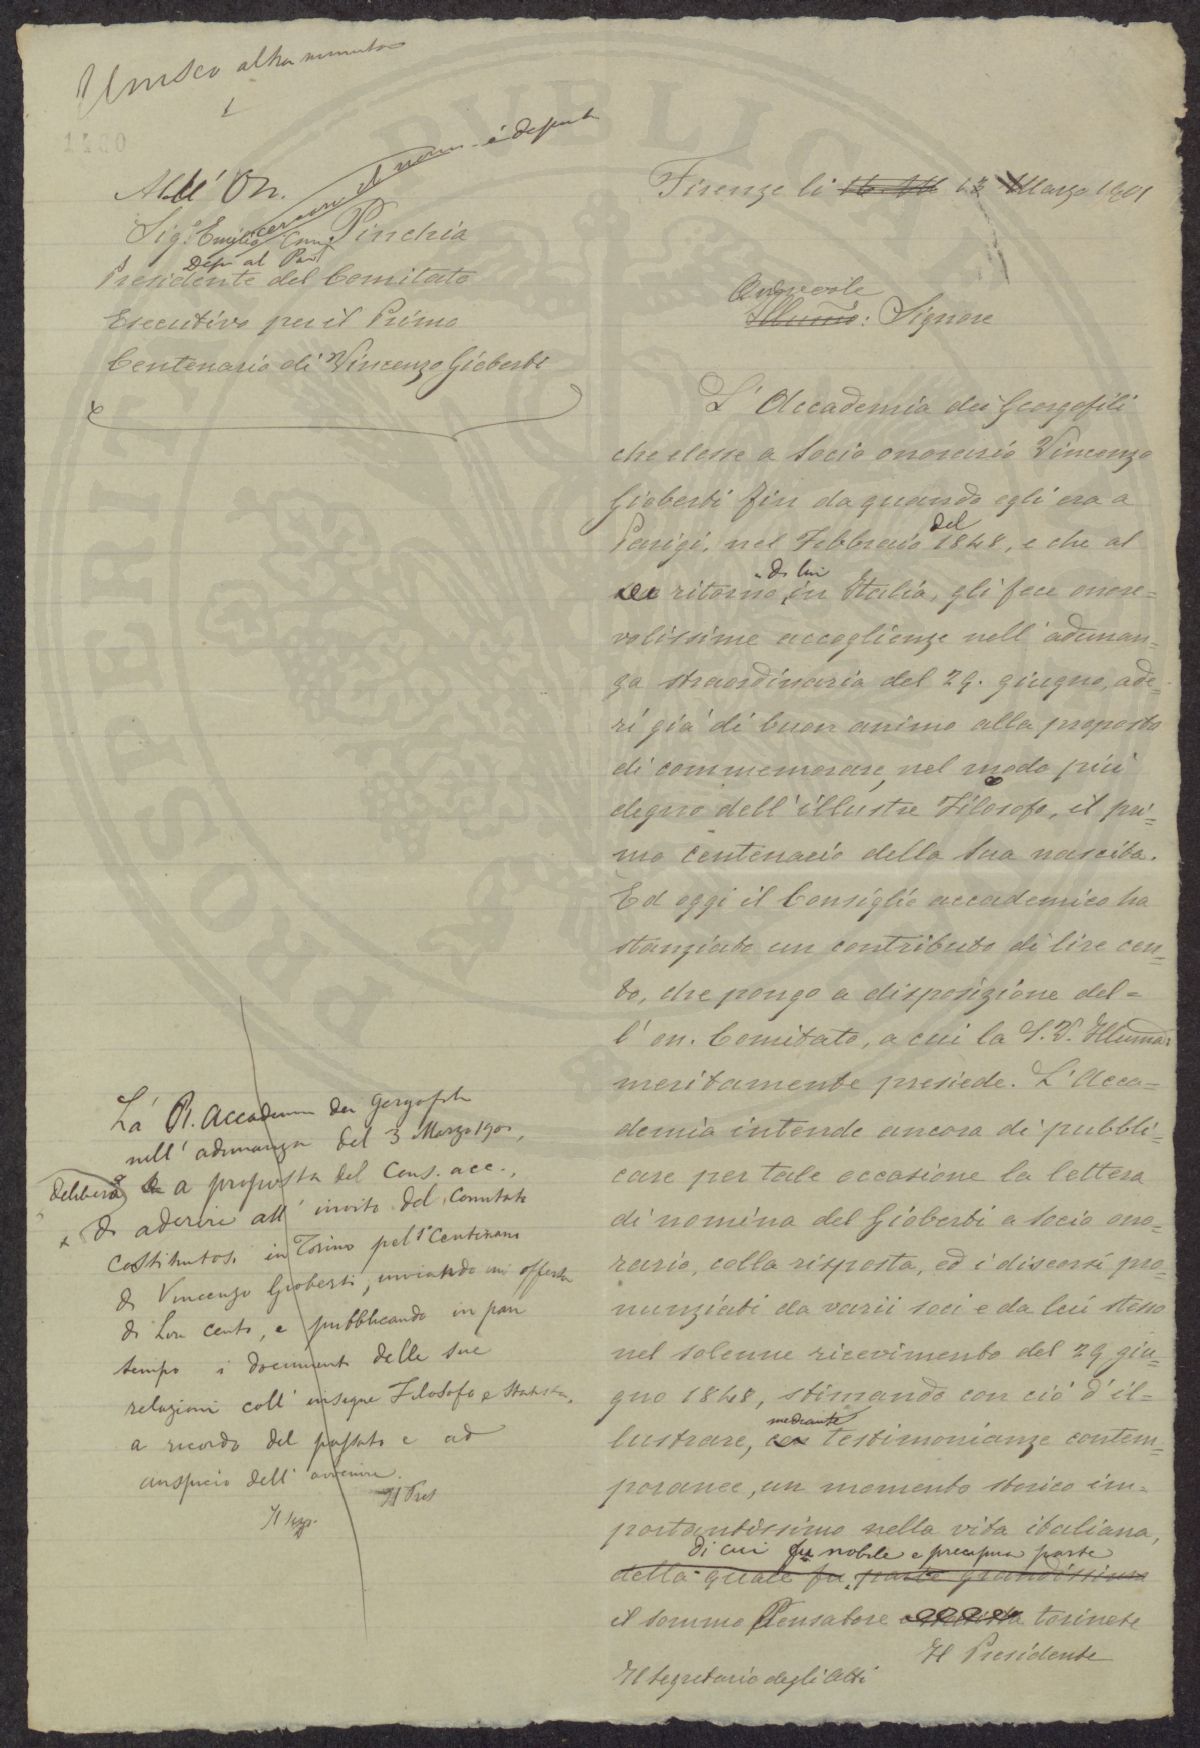 Unisco altra minuta
All' On.
Sig.r Emilio Pinchia
Dep. al Parl.
cercare il nome è deputato
Presidente del Comitato
Esecutivo per il Primo
Centenario di Vincenzo Gioberti
Firenze li 13 Marzo 1901
Onorevole
Illumo: Signore
L'Accademia dei Georgofili
che elesse a Socio onorario Vincenzo
Gioberti fin da quando egli era a
Parigi, nel Febbraio del 1848, e che al
ritorno di lui in Italia, gli fece onore=
volissime accoglienze nell'adunan=
za straordinaria del 29. giugno, ade=
rì già di buon animo alla proposta
di commemorare, nel modo più
degno dell'illustre Filosofo, il pri=
mo centenario della sua nascita.
Ed oggi il Consiglio accademico ha
stanziato un contributo di lire cen=
to, che pongo a disposizione del=
l'on. Comitato, a cui la S.V. Illuma:
meritamente presiede. L'Acca=
demia intende ancora di pubbli=
care per tale occasione la lettera
di nomina del Gioberti a socio ono=
rario, colla risposta, ed i discorsi pro=
nunziati da varii soci e da lui stesso
nel solenne ricevimento del 29 giu=
gno 1848, stimando con ciò d'il=
lustrare, con mediante testimonianze contem=
poranee, un momento storico im=
portantissimo nella vita italiana,
di cui fu nobile e precipua parte
della quale fu parte grandissima
il sommo Pensatore torinese
Il Presidente
Il Segretario degli Atti
La R. Accademia dei Georgofili
nell'adunanza del 3 Marzo 1901,
deliberò a proposta del Cons. acc.,
di aderire all'invito del Comitato
costituitosi in Torino pel 1° Centenario
di Vincenzo Gioberti, inviando un'offerta
di Lire cento, e pubblicando in pari
tempo i documenti delle sue
relazioni coll'insigne Filosofo e Statista,
a ricordo del passato e ad
auspicio dell'avvenire.
Il Pres
Il segr.